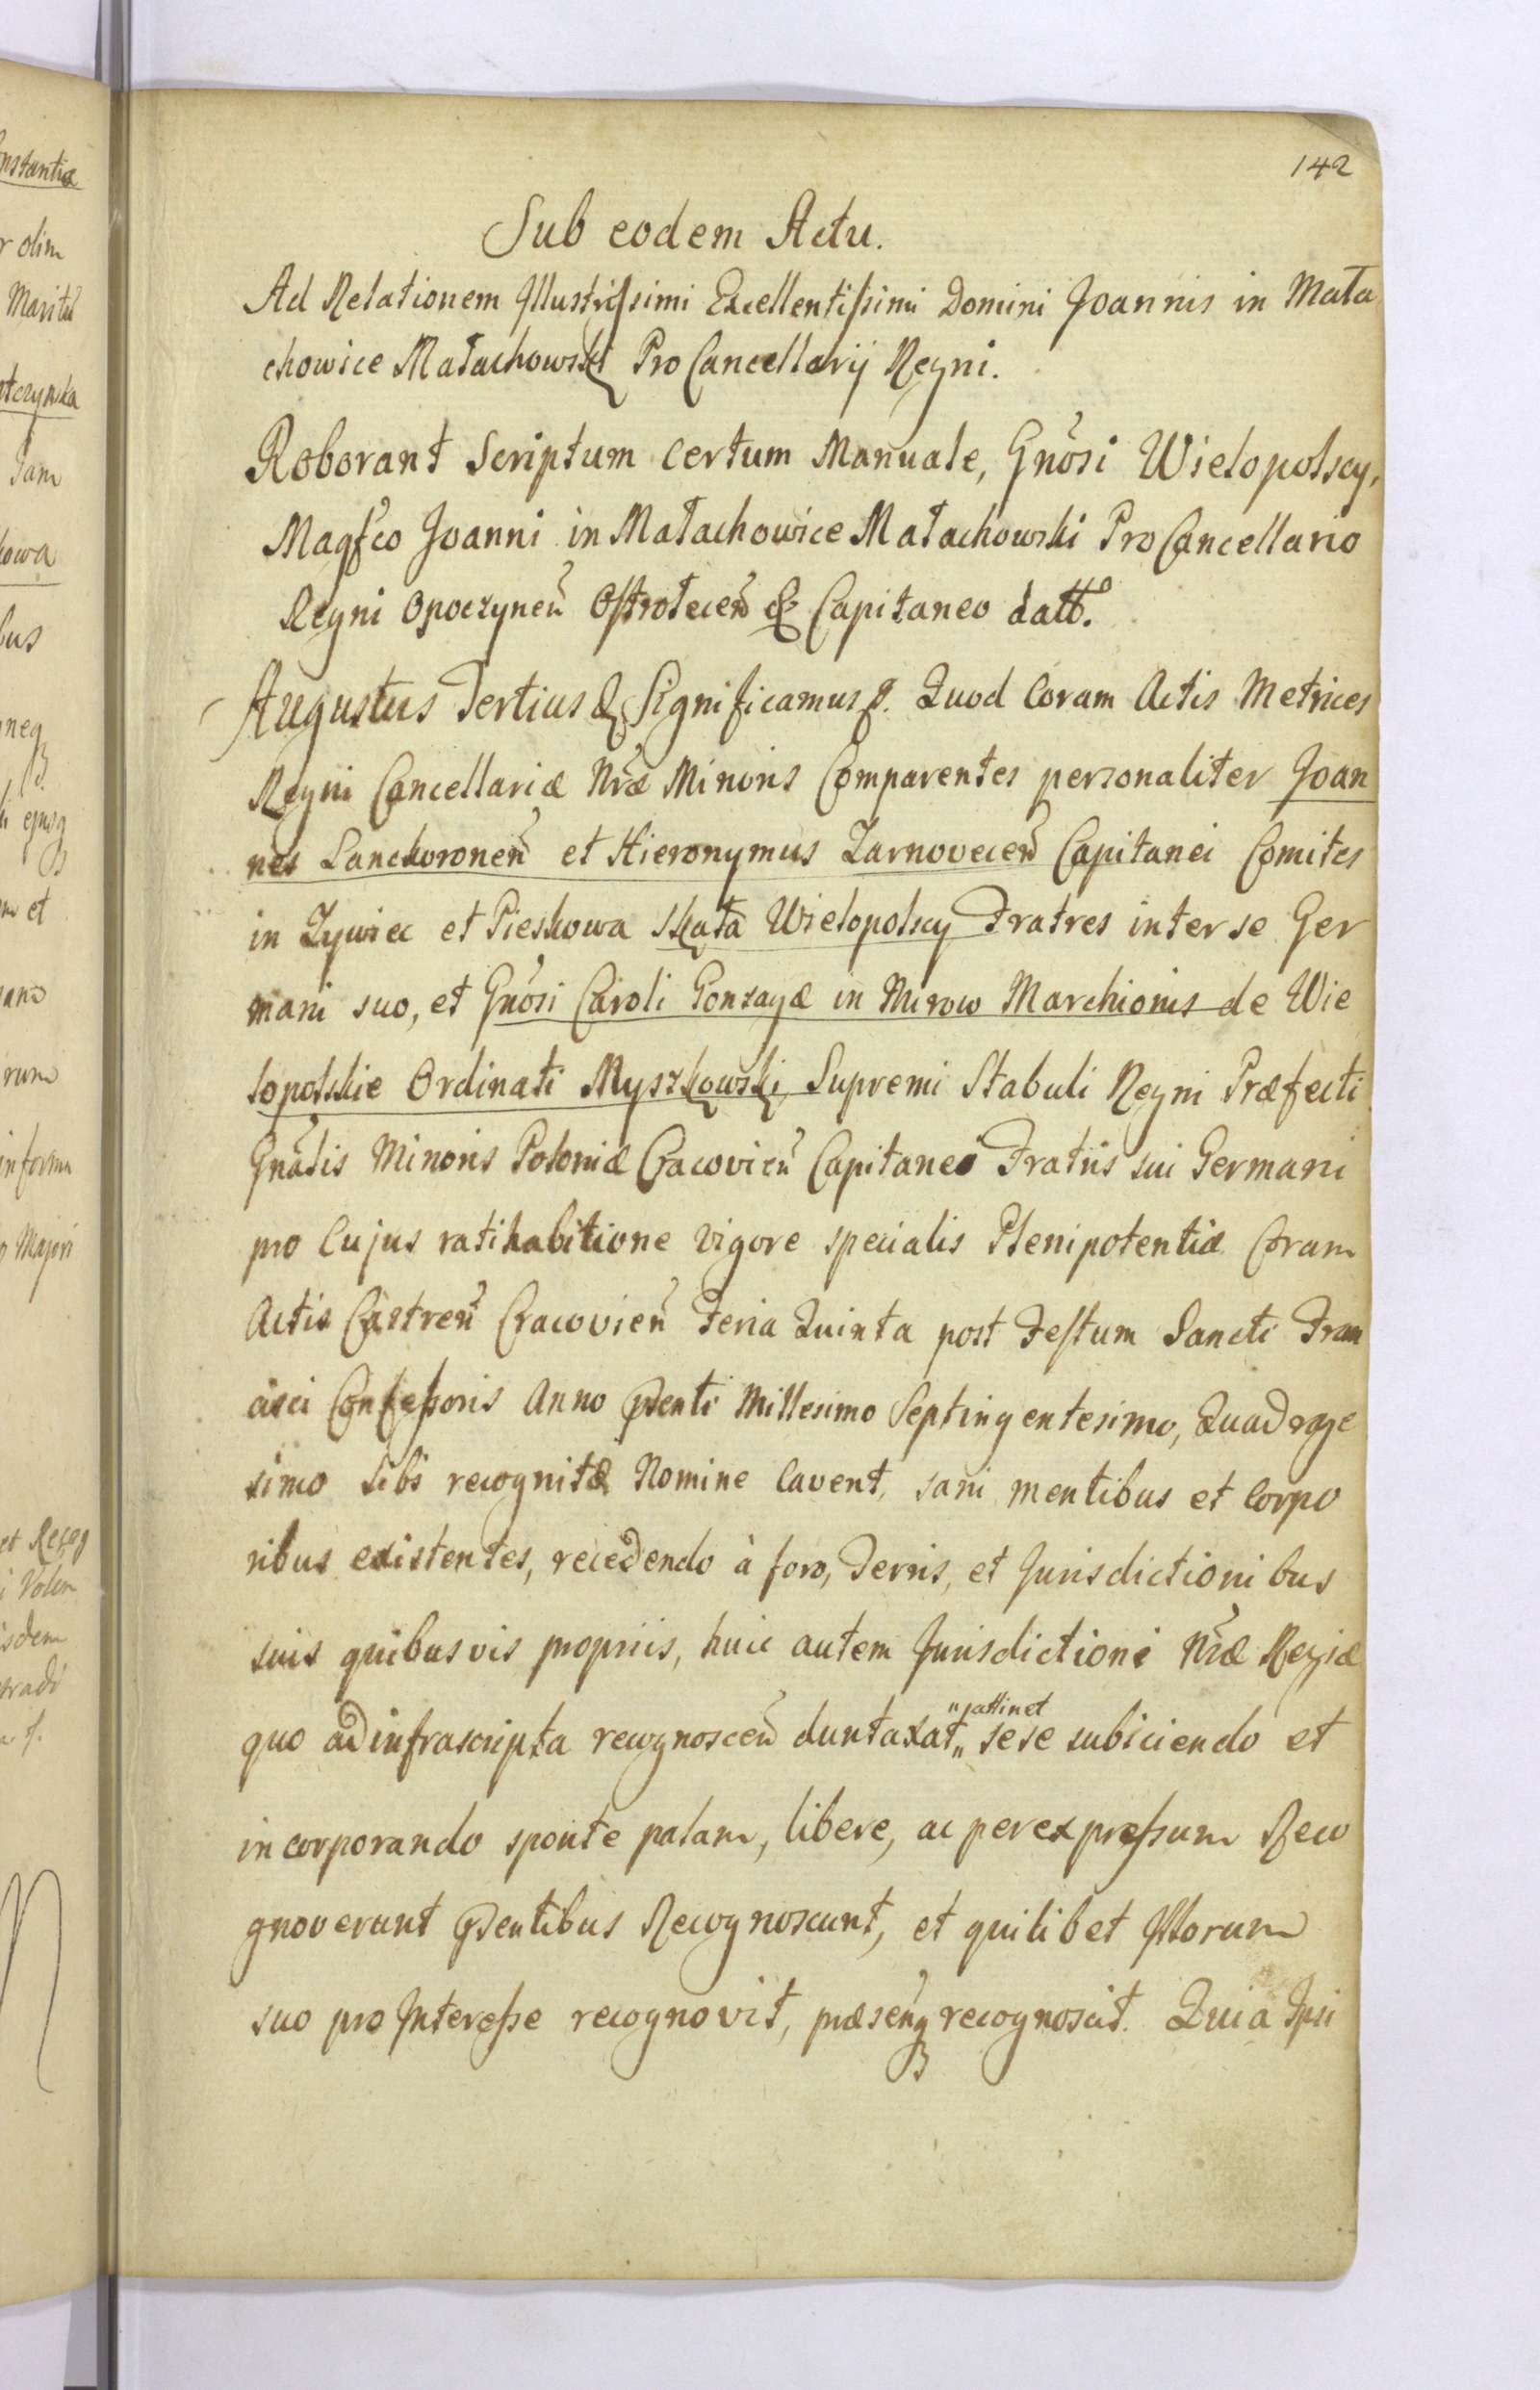 142
Sub eodem Actu.
Ad Relationem Illustrissimi Excellentissimi Domini Joannis in Mała
chowice Małachowski Pro Cancellarij Regni.
Roborant Scriptum certum Manuale, Gnõsi Wielopolscy,
Magfco Joanni in Małachowice Małachowski Pro Cancellario
Regni Opoczyneñ Ostrołeceñ & Capitaneo datt.
Augustus Tertius & Significamus &. Quod Coram Actis Metrices
Regni Cancellariæ Nræ Minoris Comparentes personaliter Joan
nes Lanckoroneñ et Hieronymus Zarnoveceñ Capitanei Comites
in Zywiec et Pieskowa Skała Wielopolscy Fratres inter se Ger
mani suo, et Gnõsi Caroli Gonzagæ in Mirow Marchionis de Wie
lopolskie Ordinati Myszkowski, Supremi Stabuli Regni Præfecti
Gnãlis Minoris Poloniæ Cracovieñ Capitanei Fratris sui Germani
pro Cujus ratihabitione vigore specialis Plenipotentiæ Coram
Actis Castreñ Cracovieñ Feria Quinta post Festum Sancti Fran
cisci Confessoris Anno pñsenti Millesimo Septingentesimo, Quadrage
simo sibi recognitæ Nomine Cavent, sani mentibus et Corpo
ribus existentes, recedendo à foro, Terris, et Jurisdictionibus
suis quibusvis propriis, huic autem Jurisdictioni Nræ Regiæ
quo ad infrascripta recognosceñ duntaxat „ sese subiciendo et
„ attinet
incorporando sponte palam, libere, ac per expressum Reco
gnoverunt pñsentibus Recognoscunt, et quilibet Illorum
suo pro Interesse recognovit, præseñq recognoscit. Quia Ipsi